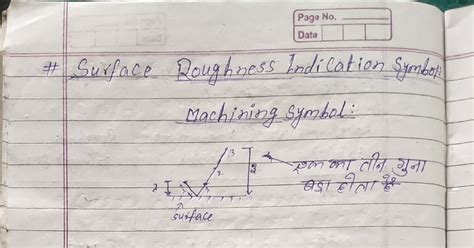 Page No.
Date
# Surface Roughness Indication Symbol:
Machining symbol:
3
2
1
एक का तीन गुना
बड़ा होता है
surface